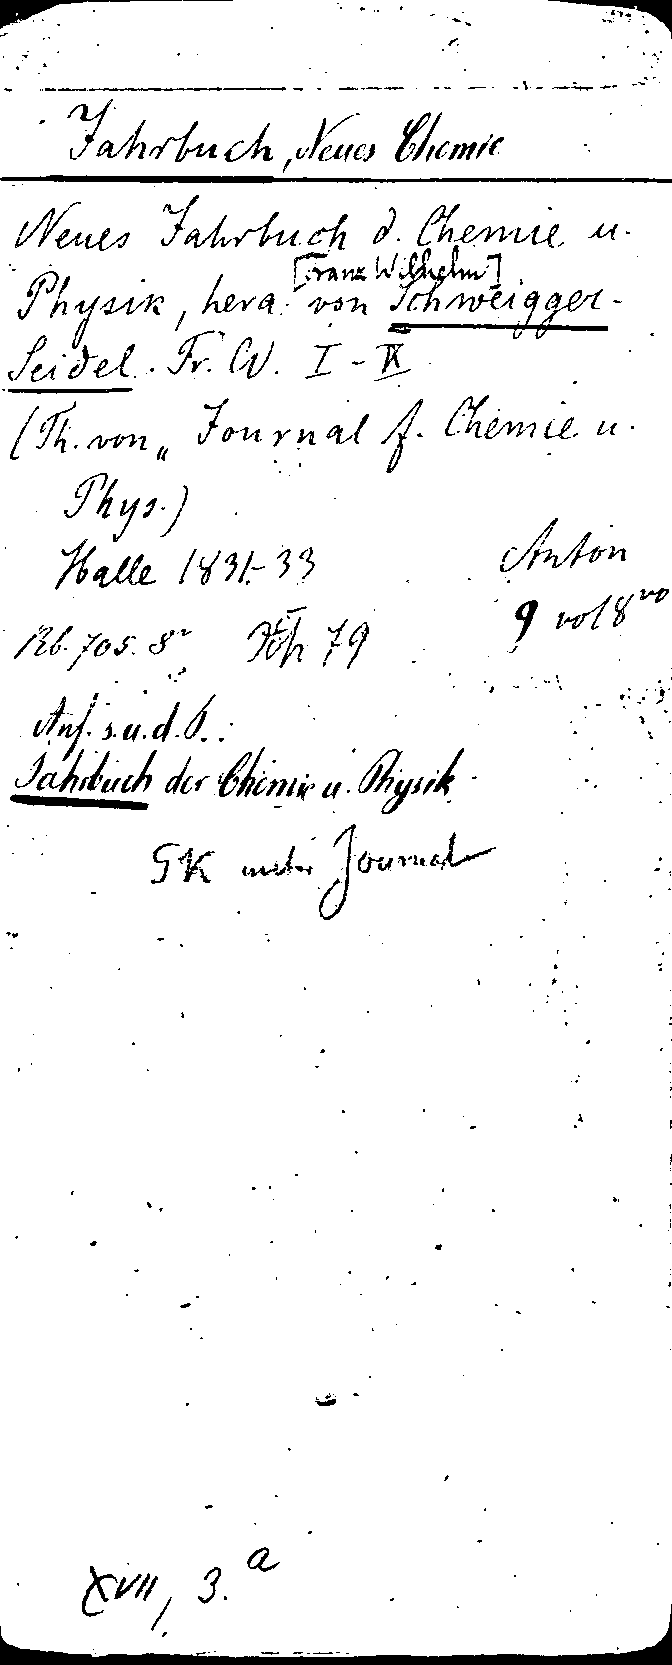 Jahrbuch, Neues Chemie
Neues Jahrbuch d. Chemie u.
[Franz Wilhelm]
Physik, hera. von Schweigger-
Seidel. Fr. W. I - IX
(Th. von „ Journal f. Chemie u.
Phys.)
Halle 1831-33 Anton
9 vol 8vo
Rb. 705. 8º 79
Anf. s. u. d. T.:
Jahrbuch der Chemie u. Physik
GK unter Journal
XVII, 3.a